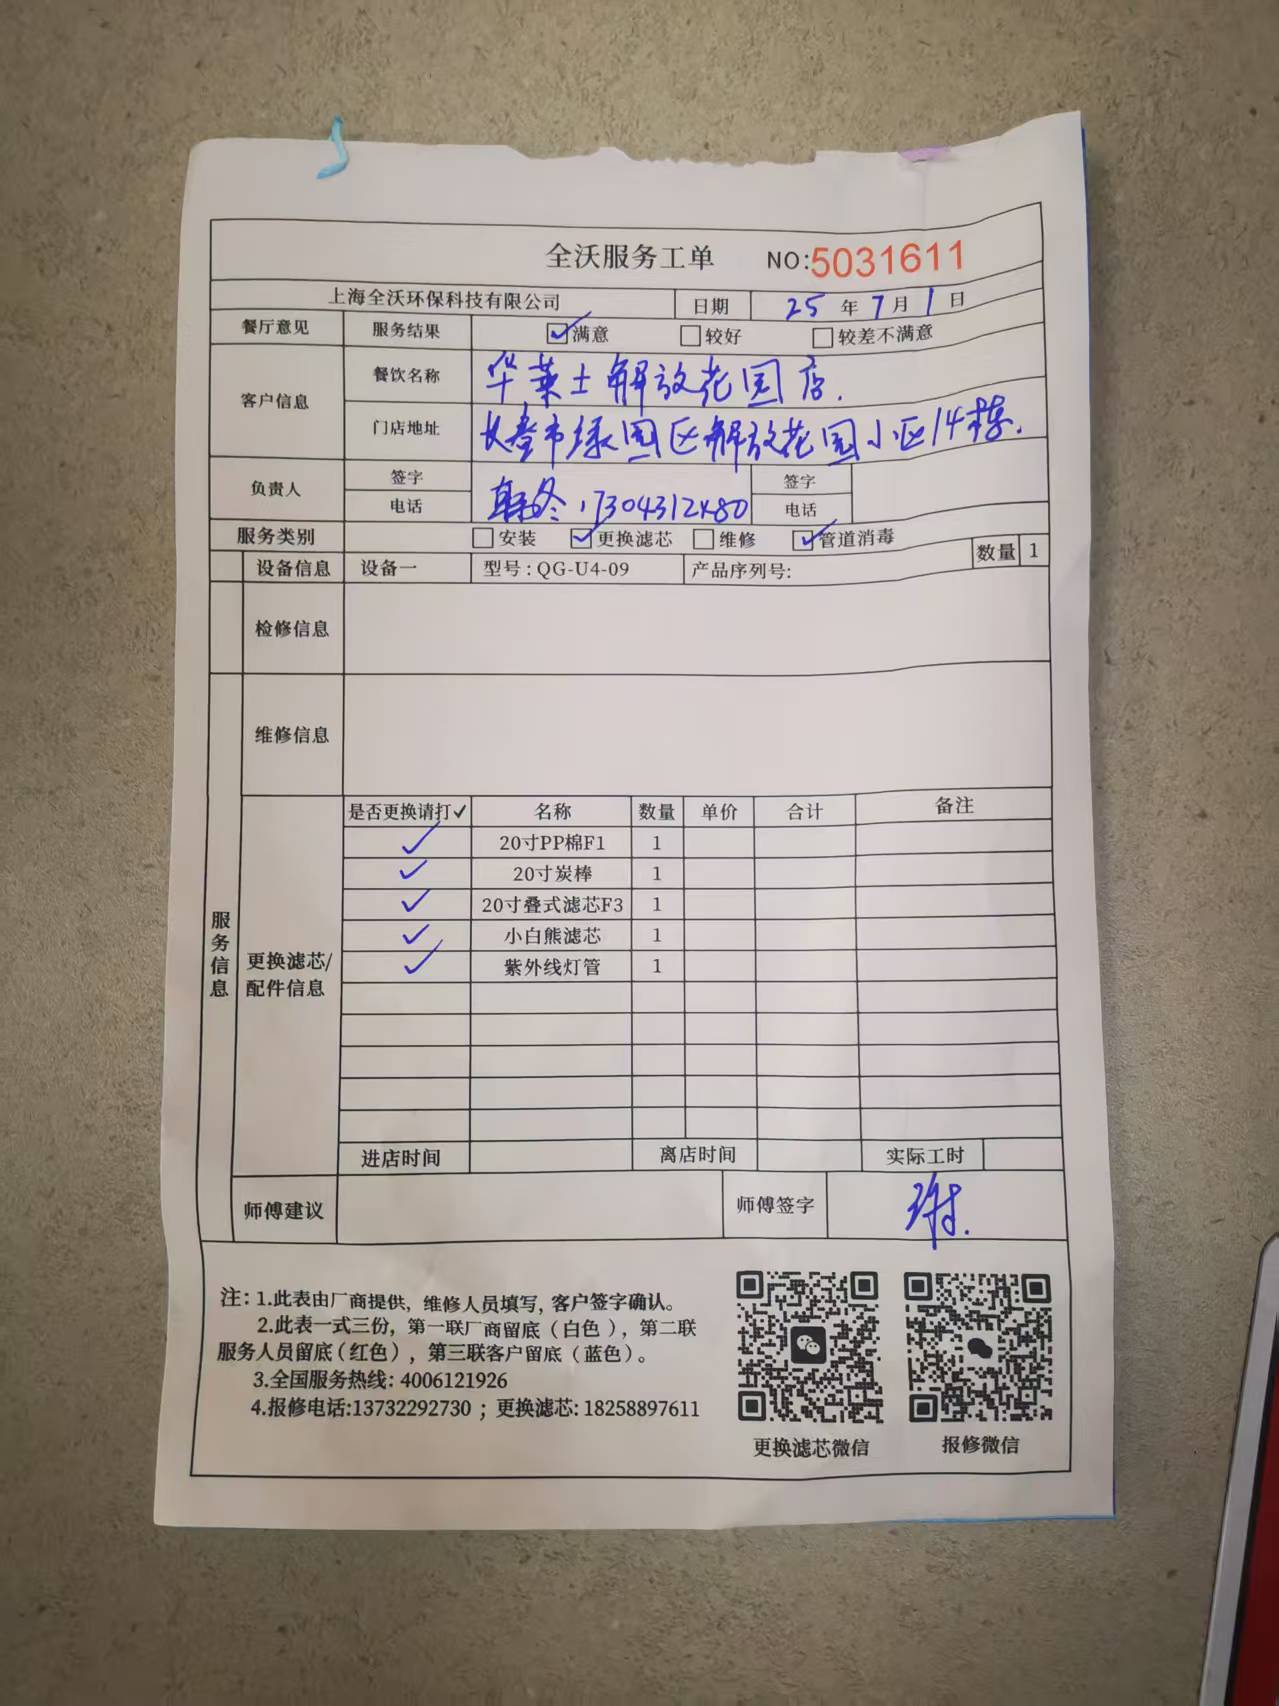 全沃服务工单 NO:5031611
上海全沃环保科技有限公司 日期 25年7月1日
餐厅意见 服务结果 ☑满意 □较好 □较差不满意
客户信息 餐饮名称 华莱士解放花园店.
门店地址 长春市绿园区解放花园小区14栋.
负责人 签字 签字
电话 电话
服务类别 □安装 ☑更换滤芯 □维修 ☑管道消毒
设备信息 设备一 型号:QG-U4-09 产品序列号: 数量 1
检修信息
维修信息
服务信息
更换滤芯/
配件信息
是否更换请打✓ 名称 数量 单价 合计 备注
✓ 20寸PP棉F1 1
✓ 20寸炭棒 1
✓ 20寸叠式滤芯F3 1
✓ 小白熊滤芯 1
✓ 紫外线灯管 1
进店时间 离店时间 实际工时
师傅建议 师傅签字
注:1.此表由厂商提供，维修人员填写,客户签字确认。
2.此表一式三份，第一联厂商留底（白色），第二联
服务人员留底(红色)，第三联客户留底（蓝色）。
3.全国服务热线: 4006121926
4.报修电话:13732292730 ；更换滤芯: 18258897611
更换滤芯微信 报修微信